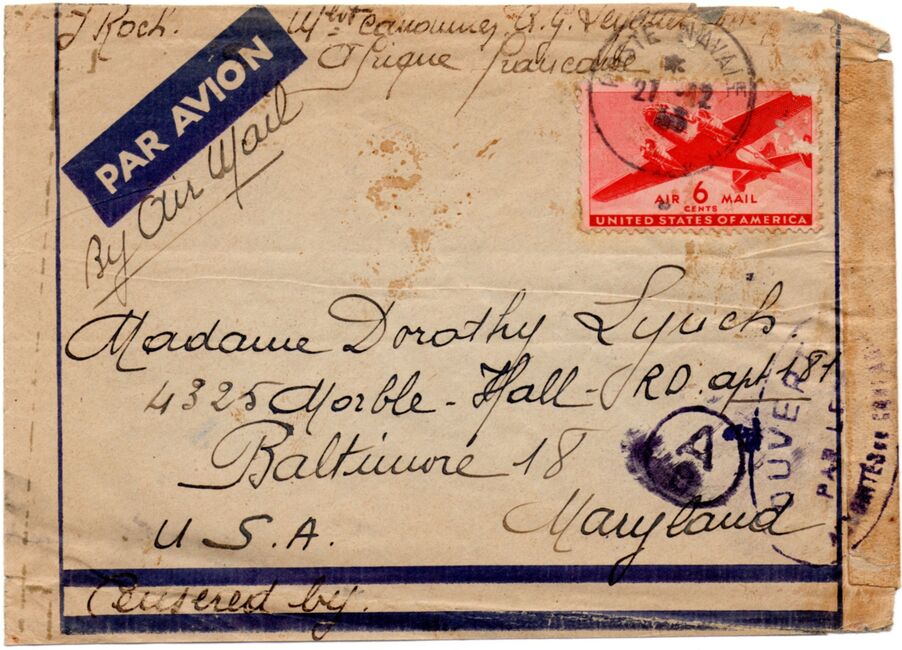 J Koch.
Afrique Française
POSTE NAVALE
27 -12
PAR AVION
By Air Mail
AIR 6 MAIL
CENTS
UNITED STATES OF AMERICA
Madame Dorothy Lynch.
4325 Morble-Hall-RD. apt 181
Baltimore 18
Maryland
U.S.A.
A
OUVERT
PAR LES
Censered by.